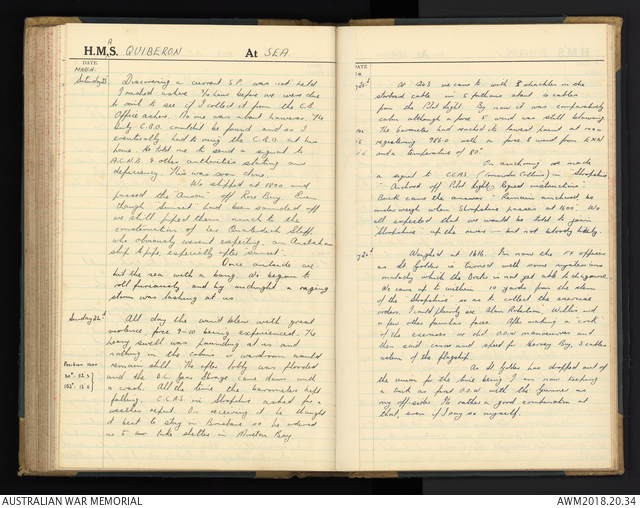 H.M.A.S. QUIBERON At SEA.
DATE
MARCH.
Saturday 25th
Discovering a current S.P. was not held
I rushed ashore ½ hour before we were due
to sail to see if I collect it from the C.B.
Office ashore. No one was about however. The
Duty C.B.O. couldn't be found and so I
eventually had to ring the C.B.O. at his
home. He told me to send a signal to
A.C.N.B. & other authorities stating our
deficiency. This was soon done.
We slipped at 1800 and
passed the off Rose Bay. Even
though "Sunset" had been sounded off
we still piped them much to the
consternation of Quarterdeck Staff
who obviously weren't expecting an Australian
ship to pipe, especially after sunset.
Once outside we
hit the sea with a bang. We began to
roll furiously and by midnight a raging
storm was lashing at us.
Sunday 26th
All day the wind blew with great
violence, force 9-10 being experienced. The
heavy swell was pounding at us and
nothing in the cabins or wardroom would
remain still. The after lobby was flooded
Position 1200
and the D.C. gear storage came down with
a crash. All the time the barometer kept
falling. C.C.A.S. in Shropshire asked for a
weather report. On receiving it he thought
it best to stay in Brisbane so he ordered
us to take shelter in Moreton Bay.
DATE
At 1263 we came to with 3 shackles on the
starboard cable in 5 fathoms about 10 cables
from the Pilot Light. By now it was comparatively
calm although a force 5 wind was still blowing.
The barometer had reached its lowest point at
registering 986.0 with a force 8 wind from
and a temperature of 80°
On anchoring we made
a signal to CCAS (Commodore Collins) in "Shropshire"
"Anchored off Pilot light; Request instructions".
Back came the answer "Remain anchored be
underway when Shropshire passes at 1600". We
all expected that we would be told to join
Shropshire up the river — but not bloody likely.
Weighed at 1616. I'm now the officer
as St Golder is turned with some mysterious
malady which the Docs is not yet able to diagnose.
We came up to within 10 yards from the stern
of the "Shropshire" so as to collect the exercise
orders. I could plainly see Alan Robertson, Willis and
a few other familiar faces. After making a "cock"
of the exercises we did O.O.W. manoeuvres and
then set course and speed for Hervey Bay, 3 cables
astern of the flagship.
As St Golder has dropped out of
the union for the time being I am now keeping
a watch as first O.O.W. with the Gunner as
my off-sider. It's rather a good combination at
that, even if I say so myself.
AUSTRALIAN WAR MEMORIAL
AWM2018.20.34